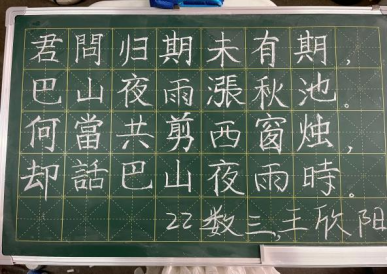 君問归期未有期，
巴山夜雨漲秋池。
何當共剪西窗烛，
却話巴山夜雨時。
22数三，王欣阳